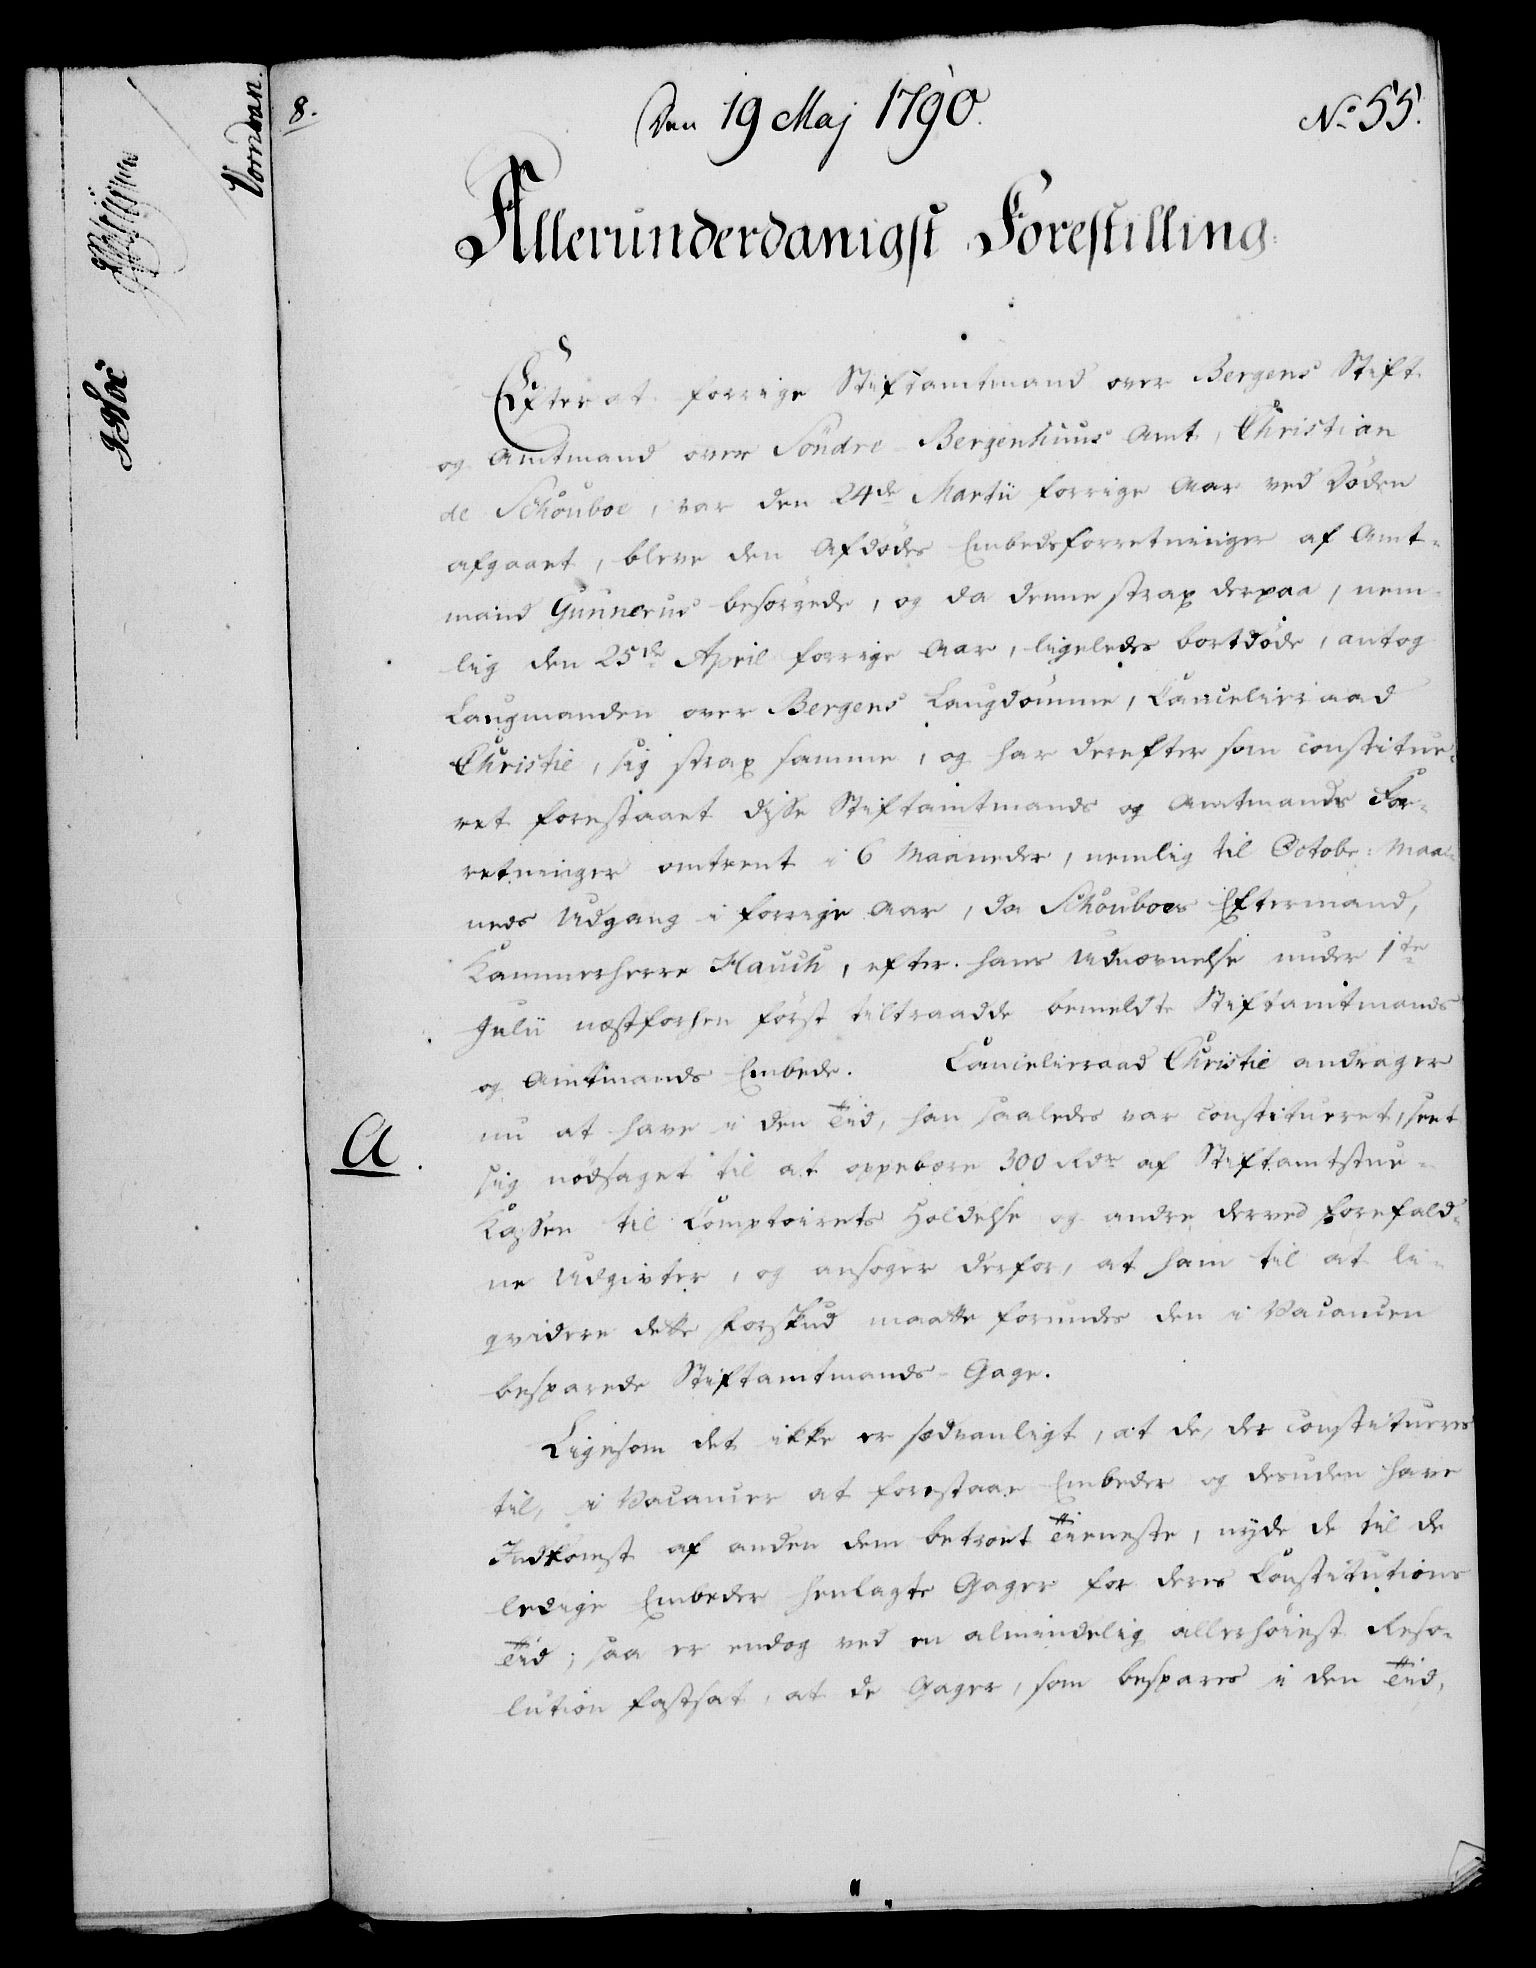 8.
Den 19 Maj 1790.
No 55.
Allerunderdanigst Forestilling.
Efter at forrige Stiftamtmand over Bergens Stift
og Amtmand over Söndre Bergenhuus Amt, Christian
de Schouboe, var den 24de Martii forrige Aar ved Döden
afgaaet, bleve den Afdödes Embedsforretninger af Amt-
mand Gunnerus besörgede, og da denne strax derpaa, nem-
lig den 25de April forrige Aar, ligeledes bortdöde, antog
Laugmanden over Bergens Laugdömme, Cancelieraad
Christie, sig strax samme, og har derefter som constitue-
ret forestaaet disse Stiftamtmands og Amtmands For-
retninger omtrent i 6 Maaneder, nemlig til Octobr: Maa-
neds Udgang i forrige Aar, da Schouboes Eftermand,
Kammerherre Hauch, efter hans Udnævnelse under 1te
Julii næstforhen först tiltraadde bemeldte Stiftamtmands
og Amtmands Embede. Cancelieraad Christie andrager
nu at have i den Tiid, han saaledes var constitueret, seet
A.
sig nödsaget til at oppebære 300 Rdr af Stiftamtstue-
Kassen til Comptoirets Holdelse og andre derved forefald-
ne Udgivter, og ansöger derfor, at ham til at li-
qvidere dette Forskud maatte forundes den i Vacancen
besparede Stiftamtmands-Gage.
Ligesom det ikke er sædvanligt, at de, der constitueres
til, i Vacancer at forestaae Embeder og desuden have
Indkomst af anden dem betroet Tieneste, nyde de til de
ledige Embeder henlagte Gager for deres Constitutions
Tiid; saa er endog ved en almindelig allerhöiest Reso-
lution fastsat, at de Gager, som spares i den Tiid,